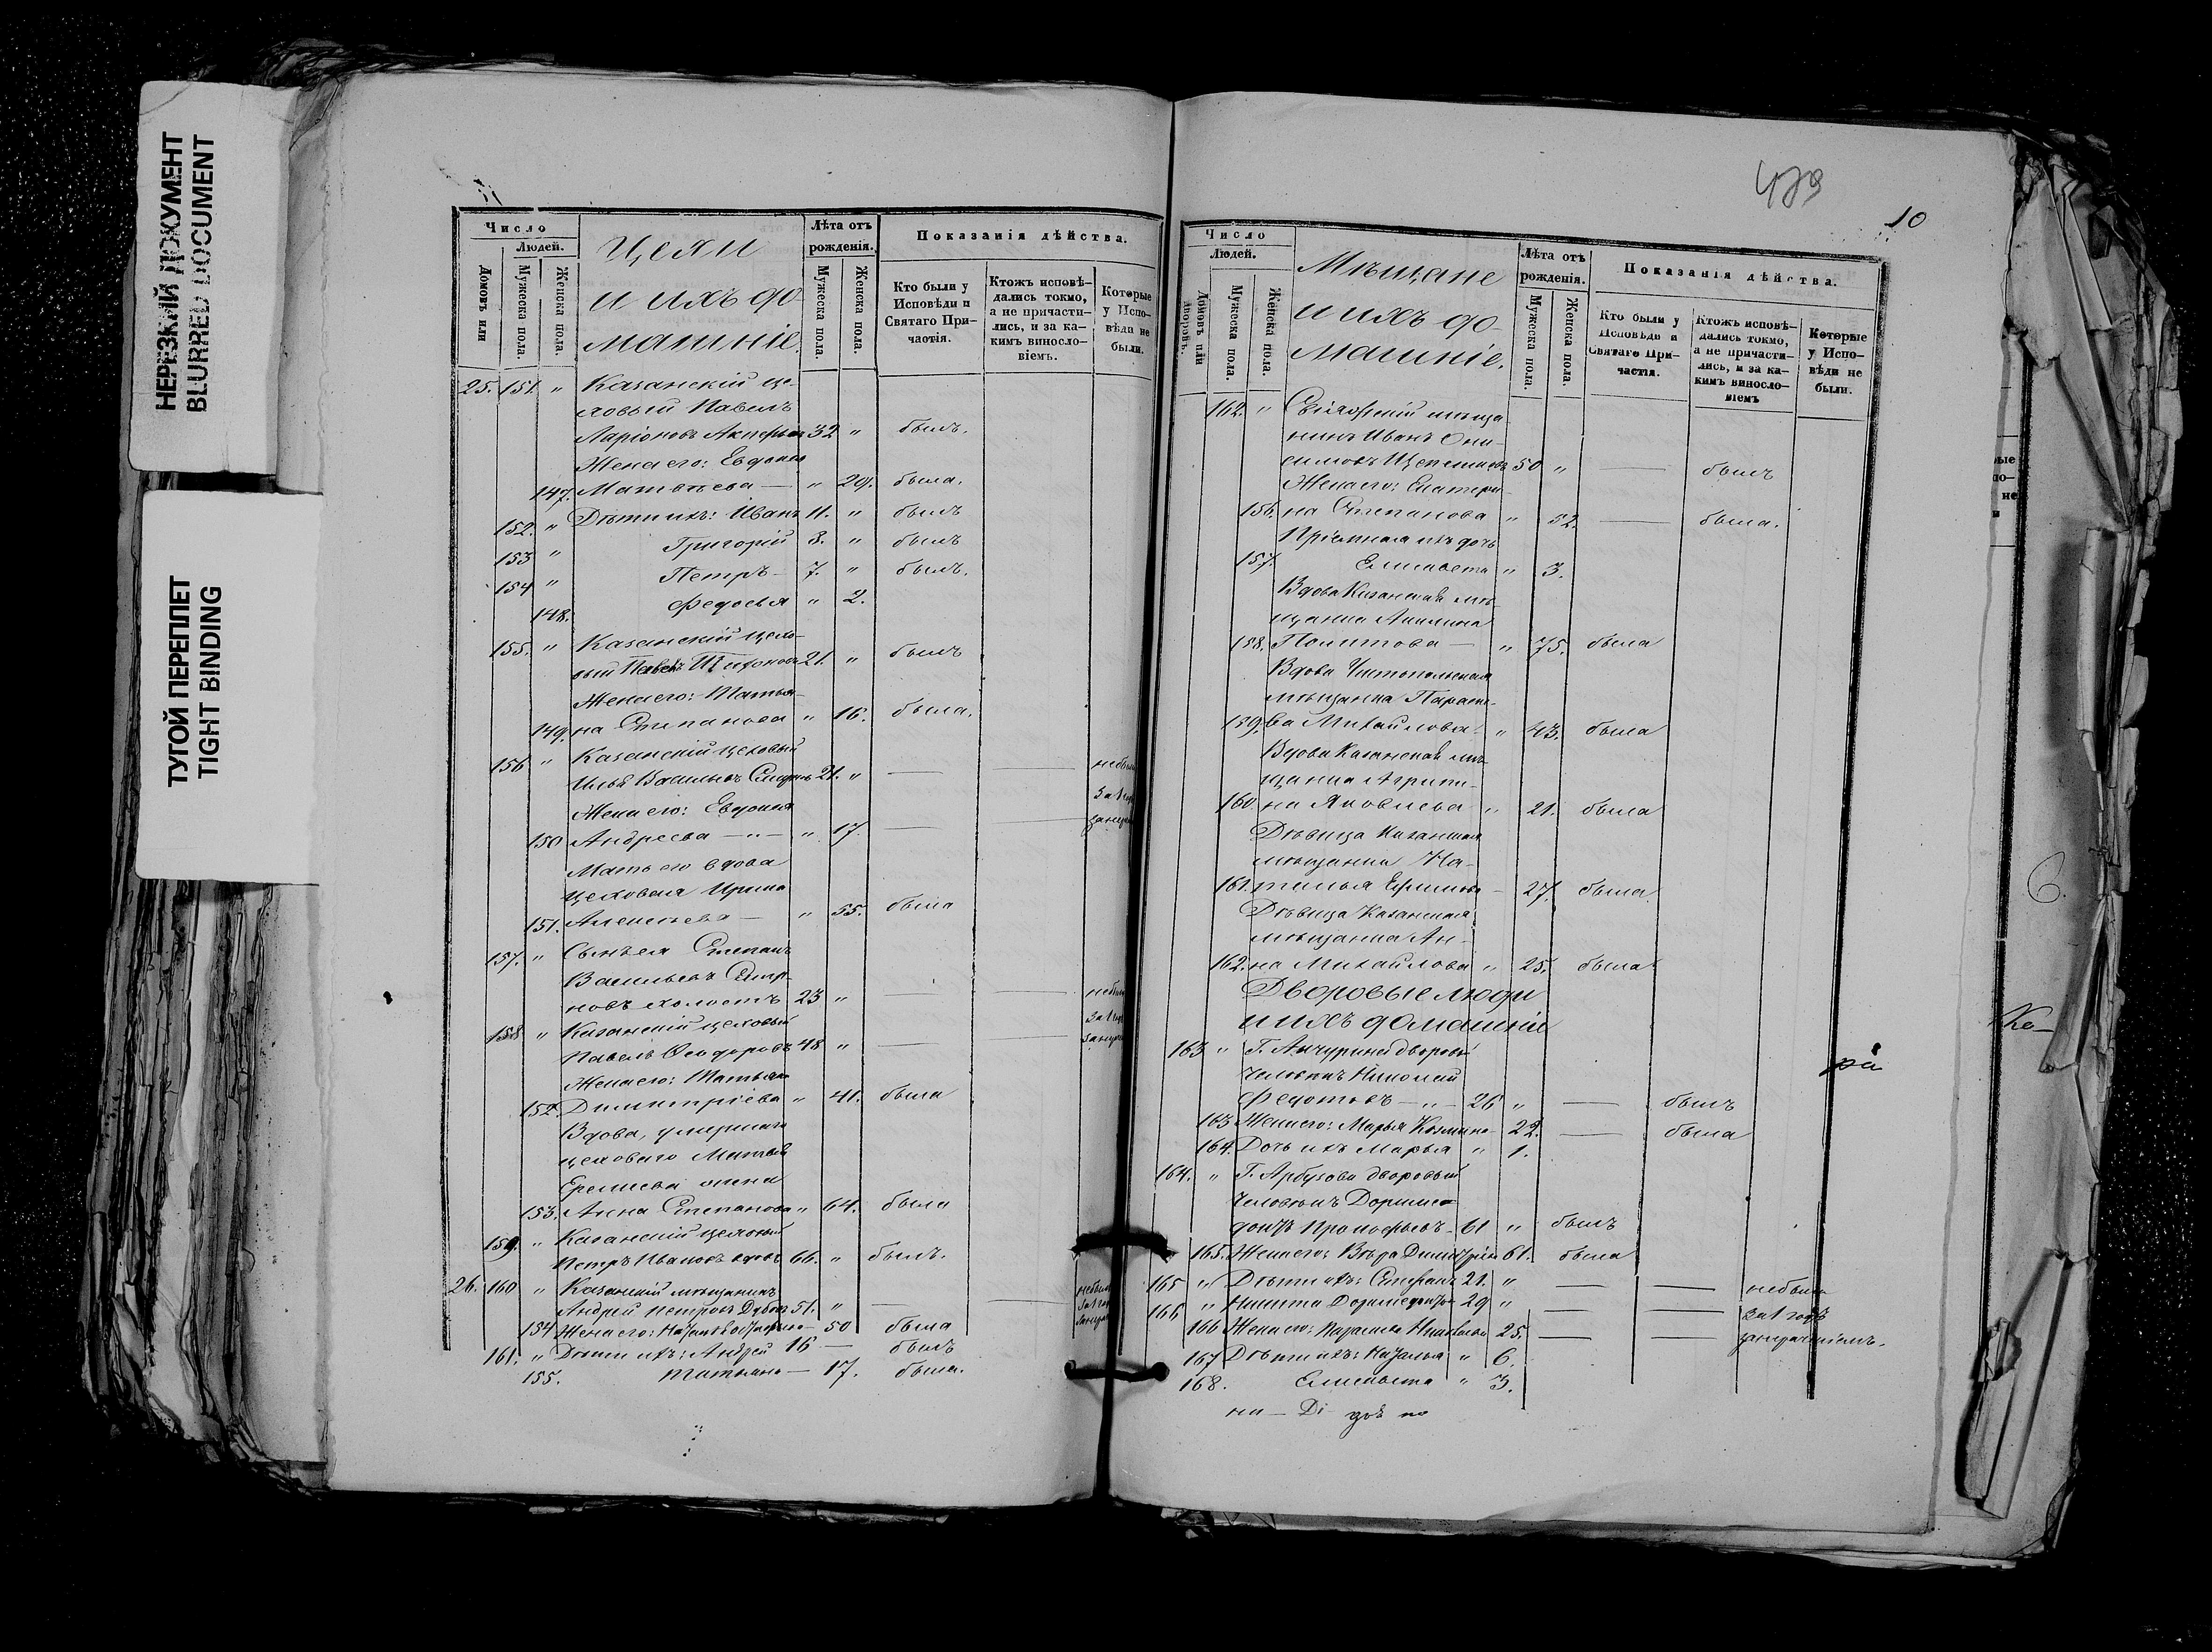 НЕРЕЗКИЙ ДОКУМЕНТ
BLURRED DOCUMENT
ТУГОЙ ПЕРЕПЛЕТ
TIGHT BINDING
Число
Людей.
Домовъ или
Мужеска пола.
Женска пола.
Цехи
и ихъ до-
машніе.
Лѣта отъ
рожденія.
Мужеска пола.
Женска пола.
Показанія дѣйства.
Кто были у
Исповѣди и
Святаго При-
частія.
Ктожъ исповѣ-
дались токмо,
а не причасти-
лись, и за ка-
кимъ винословіемъ.
Которые
у Испо-
вѣди не
были.
25. 151. " Казанскій це-
ховый Павелъ
Ларіоновъ 32 " былъ.
Жена его: Евдокія
147. Матвѣева — " 29. была.
152. " Дѣти ихъ: Иванъ 11. " былъ
153 " Григорій 8. " былъ
154 " Петръ — 7. " былъ.
148. Федосья " 2.
155. " Казанскій цехо-
вый Павелъ Тихоновъ 21. " былъ
Жена его: Татья-
149. на Степанова " 16. была.
156 " Казанскій цеховый
Илья Васильевъ 21. " — — небылъ
Жена его: Евдокия за 1 годъ
150 Андреева — " — " 17 — —
Мать его вдова
цеховая Ирина
151. Алексѣева — " 55. была
157. " Сынъ ея Степанъ
Васильевъ
холостъ 23 " — — небылъ
158 " Казанскій цеховый за 1 годъ
Павелъ Феодоровъ 48 " — —
Жена его: Татьяна
152. Димитріева " 41. была
Вдова, умершаго
цеховаго Матвѣя
жена
153. Анна Степанова " 64. была
159. " Казанскій цеховый
Петръ Ивановъ вдовъ 66. " былъ.
26. 160 " Казанскій мѣщанинъ
Андрей Петровъ 51. " — —
154 Жена его: 50 была
161. " Дѣти ихъ: Андрей 16 — былъ
155. Татьяна — 17. была.
479
10
Число
Людей.
Домовъ или
дворовъ.
Мужеска пола.
Женска пола.
Мѣщане
и ихъ до-
машніе.
Лѣта отъ
рожденія.
Мужеска пола.
Женска пола.
Показанія дѣйства.
Кто были у
Исповѣди и
Святаго При-
частія.
Ктожъ исповѣ-
дались токмо,
а не причасти-
лись, и за ка-
кимъ винословіемъ
Которые
у Испо-
вѣди не
были.
162. " мѣща-
нинъ Иванъ Они-
симовъ 50 " — былъ
Жена его: Екатери-
156. на Степанова " 52. — была.
Пріемная ихъ дочь
157. Елисавета " 3.
Вдова Казанская мѣ-
щанка Акилина
158. — " 75. была
Вдова Чистопольская
мѣщанка Параске-
159. ва Михайлова " 43. была
Вдова Казанская мѣ-
щанка Агрипи-
160 на Яковлева " 21. была
Дѣвица Казанская
мѣщанка На-
161. талья Ефимова — 27. была.
Дѣвица Казанская
мѣщанка Ан-
162. на Михайлова " 25. была
Дворовые люди
и ихъ домашніе
163 " Г. дворовый
человѣкъ Николай
Федотовъ — " — 26 " — былъ
163 Жена его: Марья Козмина 22. — была
164. Дочь ихъ Марья " 1.
164. " Г. Арбузова дворовый
человѣкъ
Прокофьевъ — 61 " былъ
165. Жена его: Вѣра Димитріева 61. была
165 " Дѣти ихъ: Стефанъ 21. " — — небылъ
166 " Никита 29 " — — за 1 годъ
166 Жена его: Параскева 25. — —
167 Дѣти ихъ: Наталья " 6.
168. Елисавета " 3.